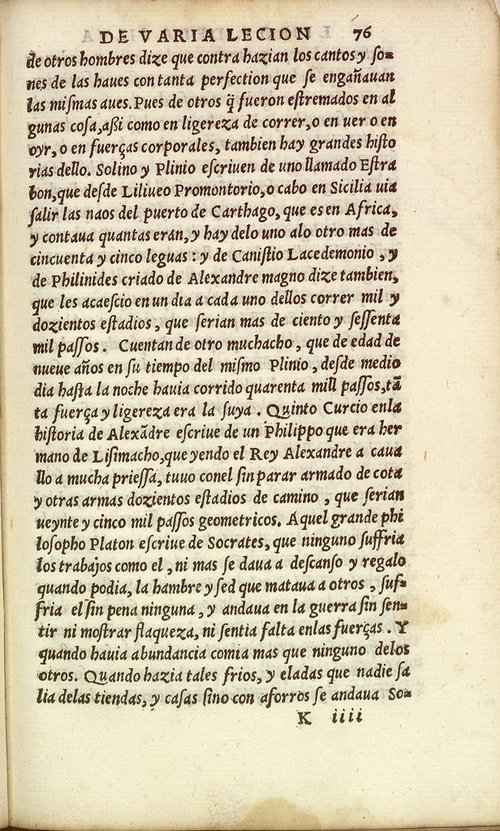 DE VARIA LECION 76
de otros hombres dize que contra hazian los cantos y so=
nes de las haues con tanta perfection que se engañauan
las mismas aues. Pues de otros q̃ fueron estremados en al
gunas cosa, aßi como en ligereza de correr, o en uer o en
oyr, o en fuerças corporales, tambien hay grandes histo
rias dello. Solino y Plinio escriuen de uno llamado Estra
bon, que desde Liliueo Promontorio, o cabo en Sicilia uia
salir las naos del puerto de Carthago, que es en Africa,
y contaua quantas eran, y hay delo uno alo otro mas de
cincuenta y cinco leguas: y de Canistio Lacedemonio, y
de Philinides criado de Alexandre magno dize tambien,
que les acaescio en un dia a cada uno dellos correr mil y
dozientos estadios, que serian mas de ciento y sessenta
mil passos. Cuentan de otro muchacho, que de edad de
nueue años en su tiempo del mismo Plinio, desde medio
dia hasta la noche hauia corrido quarenta mill passos, tã
ta fuerça y ligereza era la suya. Quinto Curcio enla
historia de Alexãdre escriue de un Philippo que era her
mano de Lisimacho, que yendo el Rey Alexandre a caua
llo a mucha priessa, tuuo conel sin parar armado de cota
y otras armas dozientos estadios de camino, que serian
ueynte y cinco mil passos geometricos. Aquel grande phi
losopho Platon escriue de Socrates, que ninguno suffria
los trabajos como el, ni mas se daua a descanso y regalo
quando podia, la hambre y sed que mataua a otros, suf=
fria el sin pena ninguna, y andaua en la guerra sin sen=
tir ni mostrar flaqueza, ni sentia falta enlas fuerças. Y
quando hauia abundancia comia mas que ninguno delos
otros. Quando hazia tales frios, y eladas que nadie sa
lia delas tiendas, y casas sino con aforros se andaua So=
K iiii